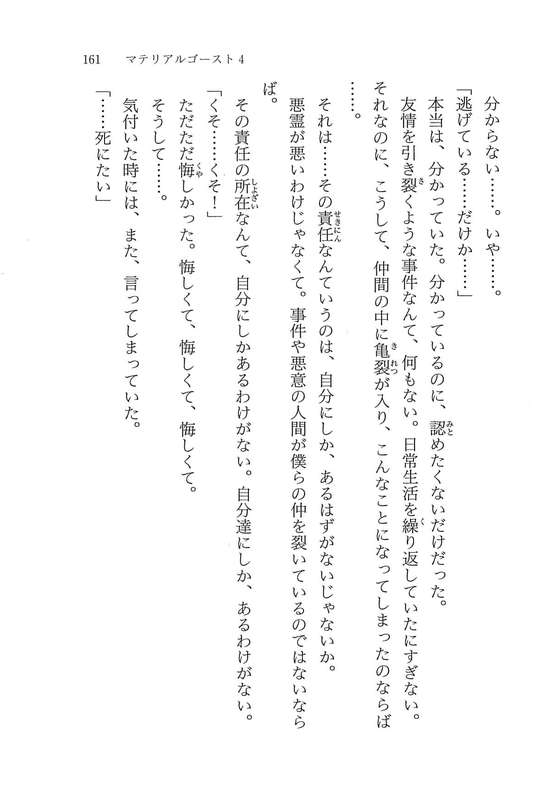 161　マテリアルゴースト4
分からない……。いや……。
「逃げている……だけか……」
本当は、分かっていた。分かっているのに、認めたくないだけだった。
友情を引き裂くような事件なんて、何もない。日常生活を繰り返していたにすぎない。
それなのに、こうして、仲間の中に亀裂が入り、こんなことになってしまったのならば
……。
それは……その責任なんていうのは、自分にしか、あるはずがないじゃないか。
悪霊が悪いわけじゃなくて。事件や悪意の人間が僕らの仲を裂いているのではないなら
ば。
その責任の所在なんて、自分にしかあるわけがない。自分達にしか、あるわけがない。
「くそ……くそ！」
ただただ悔しかった。悔しくて、悔しくて、悔しくて。
そうして……。
気付いた時には、また、言ってしまっていた。
「……死にたい」